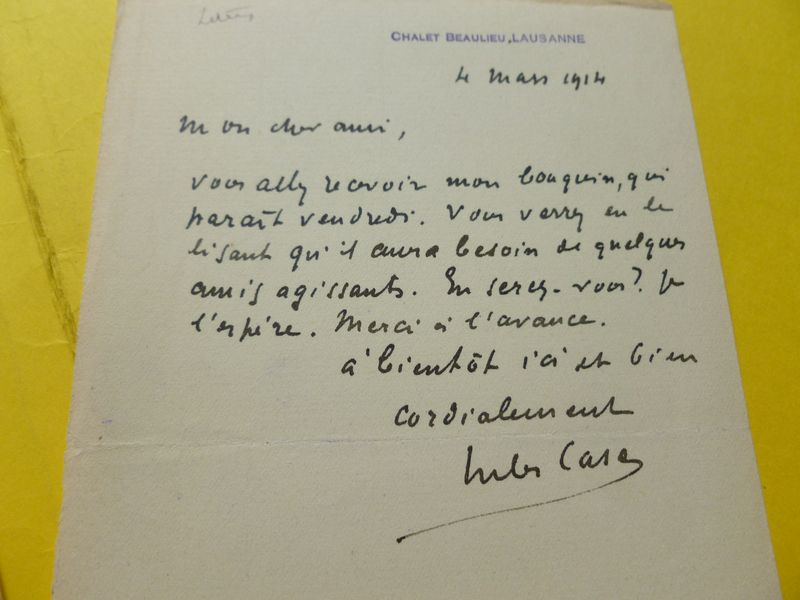 CHALET BEAULIEU, LAUSANNE
4 Mars 1914
Mon cher ami,
Vous allez recevoir mon bouquin, qui
paraît vendredi. Vous verrez en le
lisant qu'il aura besoin de quelques
amis agissants. En serez-vous? Je
l'espère. Merci à l'avance.
à bientôt ici et bien
cordialement
Jules Case